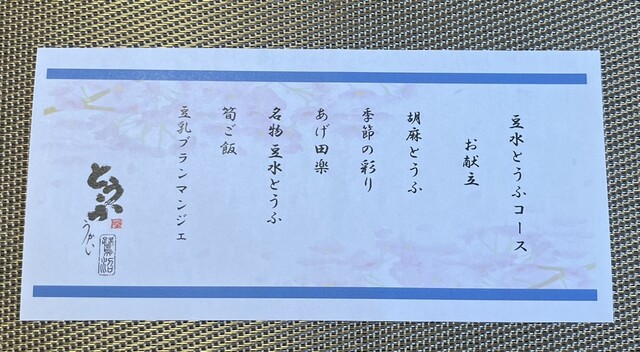 豆水とうふコース
お献立
胡麻とうふ
季節の彩り
あげ田楽
名物 豆水とうふ
筍ご飯
豆乳ブランマンジェ
とうふ
うかい
鷺沼